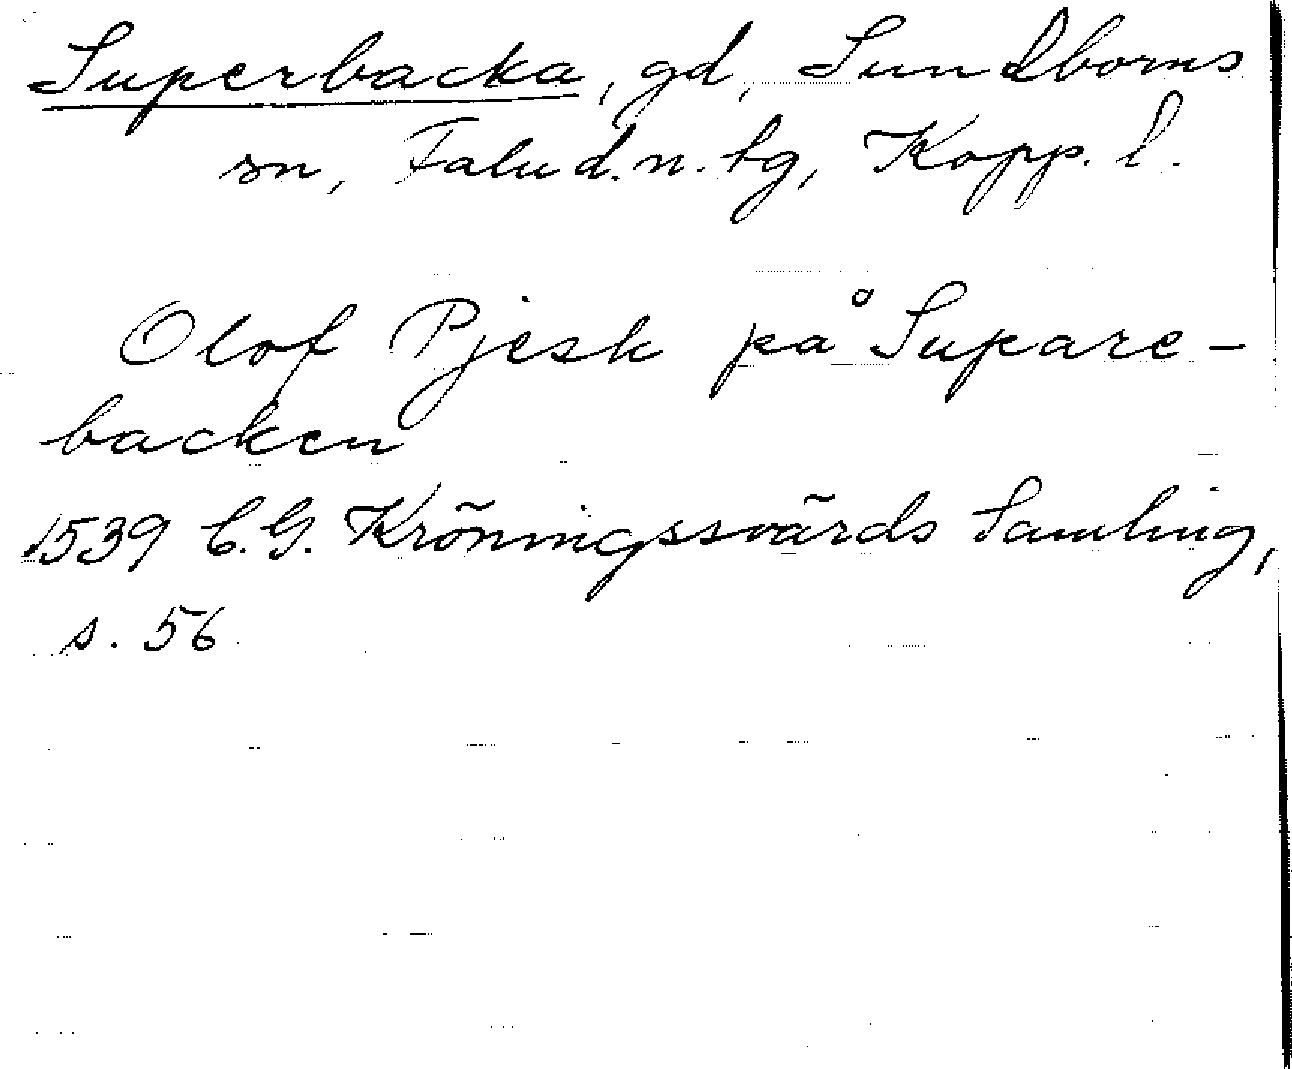 Superbacka, gd, Sundborns
sn, Falu d. n. tg, Kopp. l.
Olof Pjesk på Supare-
backen
1539 C.G. Kröningssvärds Samling,
s. 56